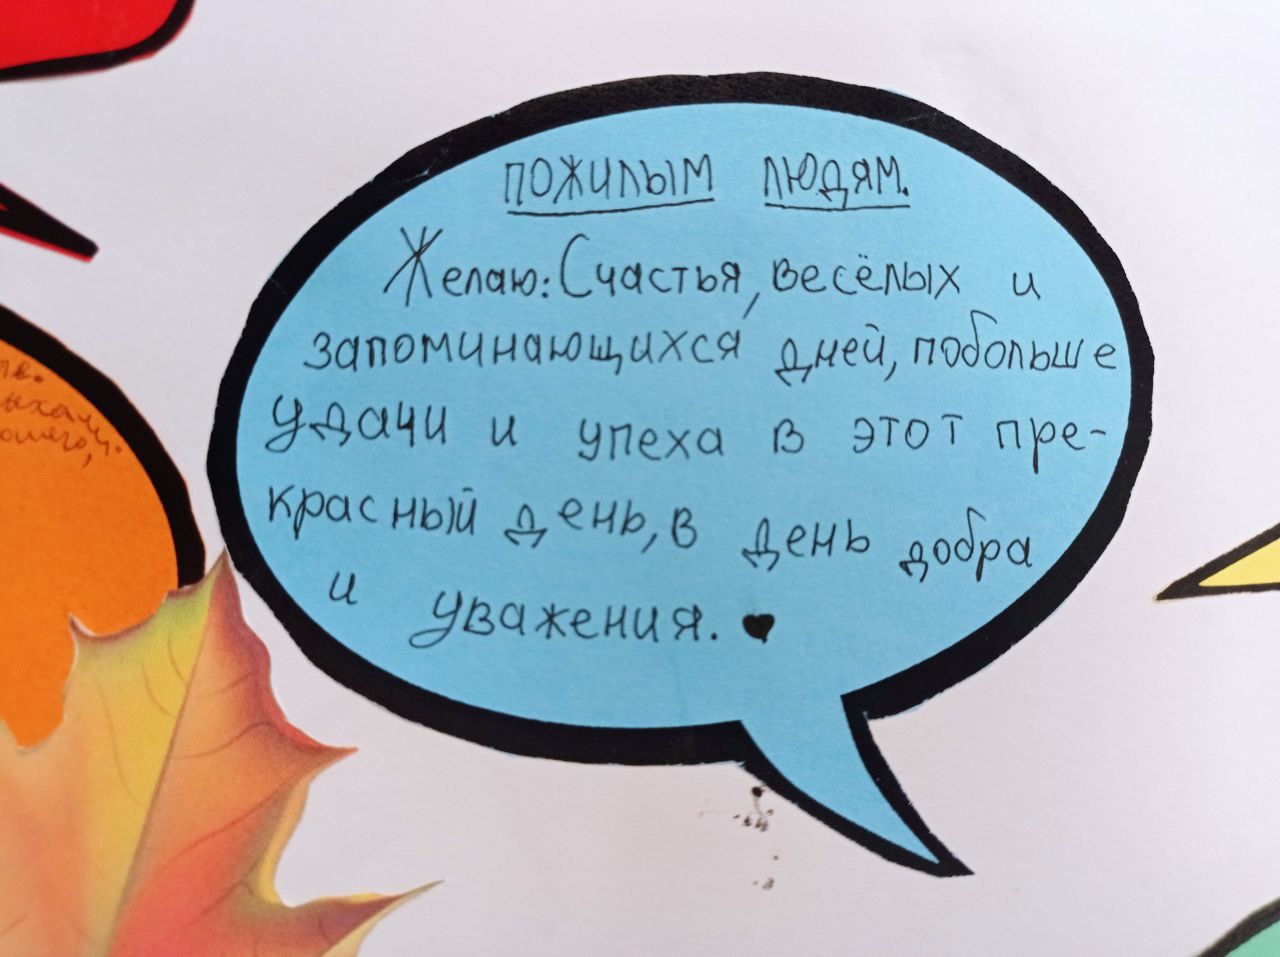 ПОЖИЛЫМ ЛЮДЯМ.
Желаю: Счастья, весёлых и
запоминающихся дней, побольше
удачи и упеха в этот пре-
красный день, в день добра
и уважения. ♥